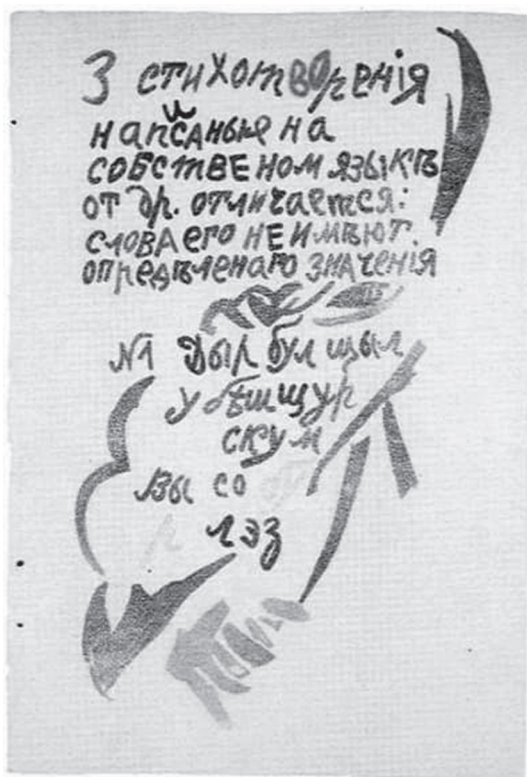 3 стихотворенія
написаные на
собственом языкѣ
от др. отличается:
слова его не имѣют
опредѣленаго значенія
№1 Дыр бул щыл
убѣшщур
скум
вы со бу
р л эз